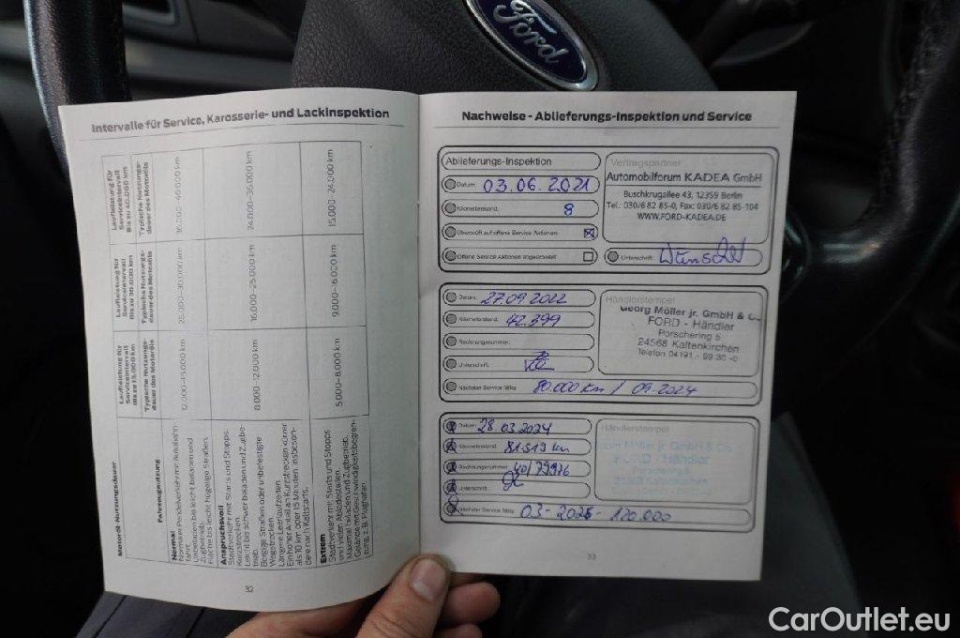 Ford
Intervalle für Service, Karosserie- und Lackinspektion
Motoröl-Nutzungsdauer
Laufleistung für Serviceintervall Bis zu 15.000 km
Laufleistung für Serviceintervall Bis zu 30.000 km
Laufleistung für Serviceintervall Bis zu 40.000 km
Fahrzeugnutzung
Typische Nutzungsdauer des Motoröls
Typische Nutzungsdauer des Motoröls
Typische Nutzungsdauer des Motoröls
Normal
12.000–15.000 km
25.000–30.000 km
Anspruchsvoll
8.000–12.000 km
16.000–25.000 km
24.000–36.000 km
Extrem
5.000–8.000 km
9.000–16.000 km
15.000–24.000 km
32
Nachweise - Ablieferungs-Inspektion und Service
Ablieferungs-Inspektion
Datum: 03.06.2021
Kilometerstand: 8
Überprüft auf offene Service Aktionen
Offene Service Aktionen
Vertragspartner
Automobilforum KADEA GmbH
Buschkrugallee 43, 12359 Berlin
Tel.: 030/6 82 85-0, Fax: 030/6 82 85-104
WWW.FORD-KADEA.DE
Unterschrift:
Datum: 27.09.2022
Kilometerstand: 42.399
Rechnungsnummer:
Unterschrift:
Nächster Service fällig: 80.000 km / 09.2024
Händlerstempel
Georg Müller jr. GmbH & C
FORD - Händler
Porschering 5
24568 Kaltenkirchen
Telefon 04191 - 99 30 -0
Datum: 28.03.2024
Kilometerstand: 81.513 km
Rechnungsnummer: 40/79976
Unterschrift:
Nächster Service fällig: 120.000
Händlerstempel
Müller jr. GmbH & C
FORD - Händler
33
CarOutlet.eu